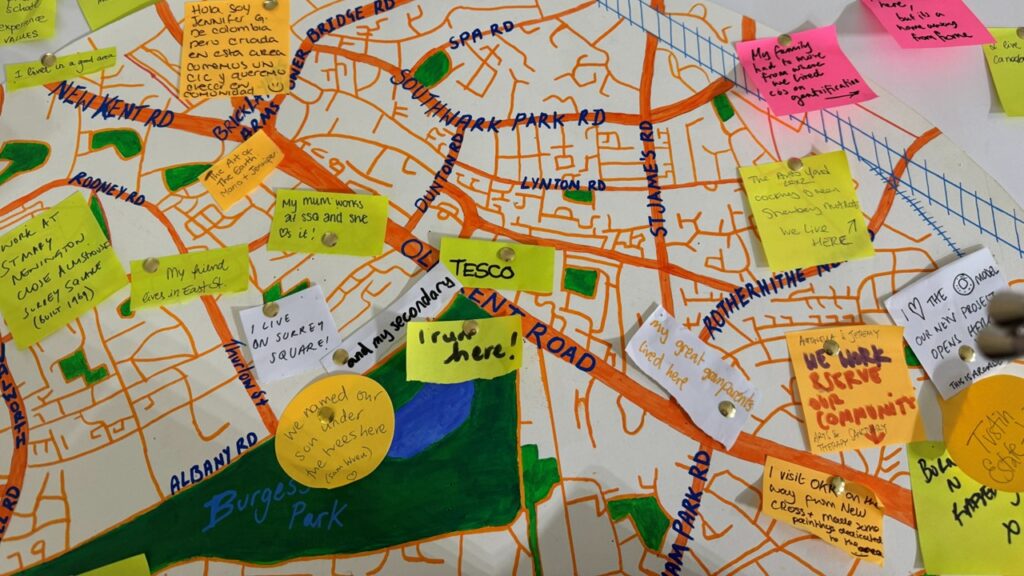 School
experience
values
I lived in a good area
Hola soy
Jennifer G.
de colombia
pero criada
en esta area
Tomamos un
CIC y queremos
crecer en
comunidad
TOWER BRIDGE RD
SPA RD
My family
had to move
from where
we lived
cos on
gentrification
here,
but it's a
home away
from home
I live
NEW KENT RD
BRICKLAYERS
ARMS
SOUTHWARK PARK RD
The Art of
The Earth
Maria + Jennifer
DUNTON RD
LYNTON RD
ST JAMES'S RD
The
occupy
We live
HERE
RODNEY RD
WORK AT
ST MARY
NEWINGTON
CLOSE ALMSHOUSE
SURREY SQUARE
(BUILT 1969)
My friend
lives in East St.
My mum works
at ssa and she
is it!
OLD KENT ROAD
TESCO
ROTHERHITHE
I LIVE
ON SURREY
SQUARE!
and my secondary
I run
here!
my great
grandparents
lived here
I THE model
OUR NEW PROJECT
OPENS HERE
THIS
JEREMY
WE WORK
OUR
COMMUNITY
Thurlow St
we named our
son under
the trees here
ALBANY RD
Burgess
Park
I visit OKR on the
way from New
Cross + made some
paintings dedicated
to the area
Tustin
Estate
PARK RD
RD